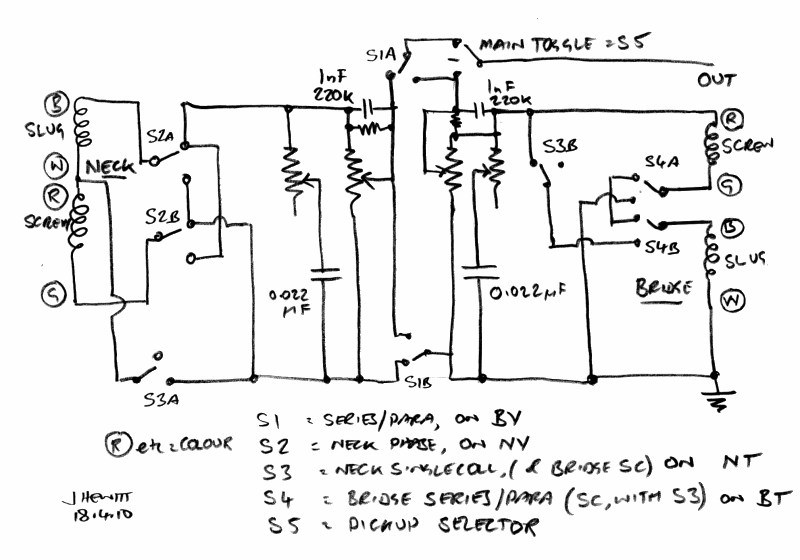 S1A
MAIN TOGGLE = S5
OUT
1nF
220K
1nF
220K
B
SLUG
W
NECK
R
SCREW
G
S2A
S2B
S3A
0.022
µF
S1B
0.022µF
S3B
S4A
S4B
R
SCREW
G
B
SLUG
W
BRIDGE
S1 = SERIES/PARA, ON BV
R etc = COLOUR
S2 = NECK PHASE, ON NV
S3 = NECK SINGLECOIL, (& BRIDGE SC) ON NT
S4 = BRIDGE SERIES/PARA (SC, WITH S3) ON BT
S5 = PICKUP SELECTOR
J HEWITT
18.4.10